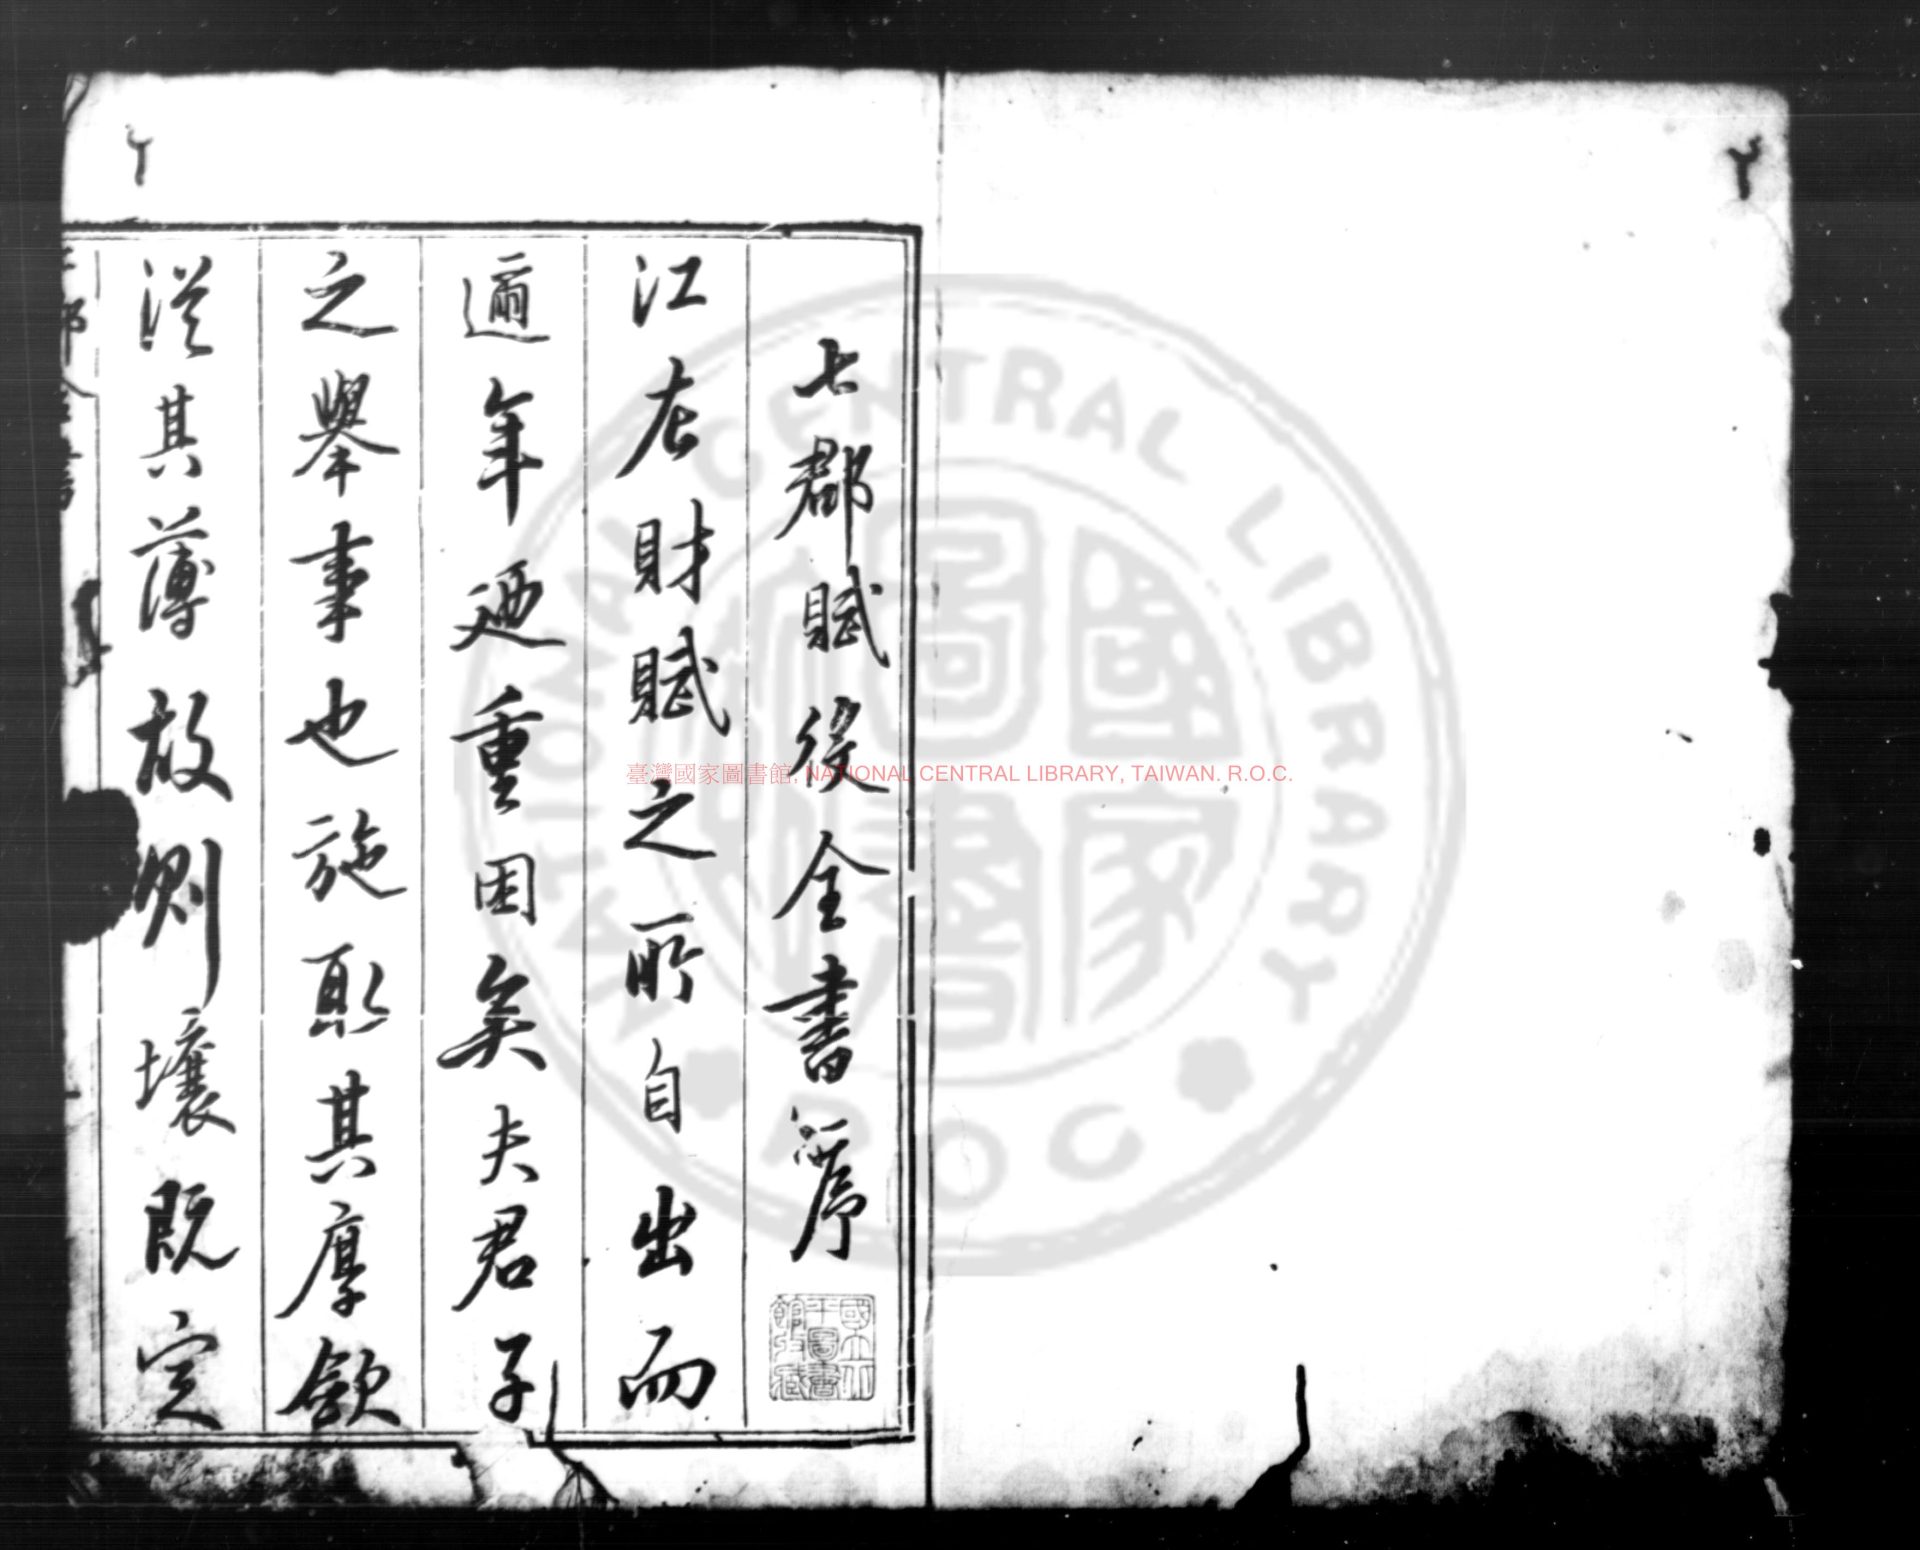 七郡賦役全書序
國立北平圖書館收藏
江左財賦之所自出而
邇年迺重困矣夫君子
之舉事也施取其厚斂
從其薄故則壤既定
郡全書
臺灣國家圖書館, NATIONAL CENTRAL LIBRARY, TAIWAN. R.O.C.
NATIONAL CENTRAL LIBRARY
ROC
國家圖書